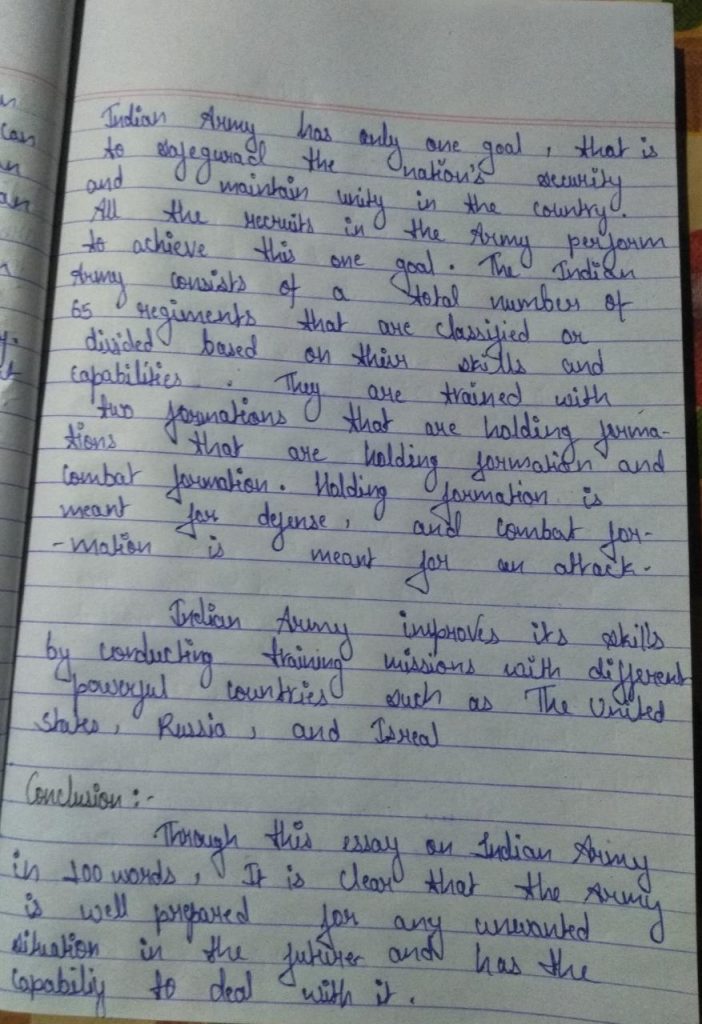 Indian Army has only one goal, that is
to safeguracl the nation's security
and maintain unity in the country.
All the recruits in the Army perform
to achieve this one goal. The Indian
Army consists of a total number of
65 regiments that are classified or
divided based on their skills and
capabilities. They are trained with
two formations that are holding forma-
tions that are holding formation and
combat formation. Holding formation is
meant for defense, and combat for-
-mation is meant for an attack.
Indian Army improves its skills
by conducting training missions with different
powerful countries such as The United
States, Russia, and Isreal
Conclusion:-
Through this essay on Indian Army
in 100 words, It is clear that the Army
is well prepared for any unwanted
situation in the futurer and has the
capabiliy to deal with it.